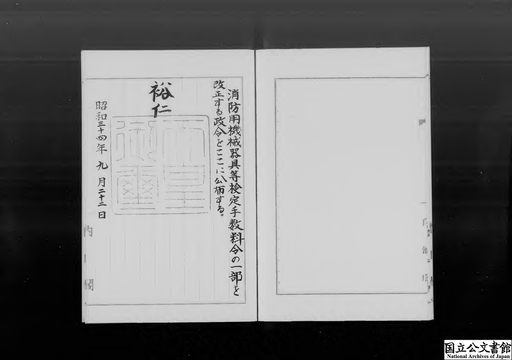 消防用機械器具等検定手数料令の一部を
改正する政令をここに公布する。
裕仁
天皇
御璽
昭和三十四年九月二十三日
内閣
国立公文書館
National Archives of Japan